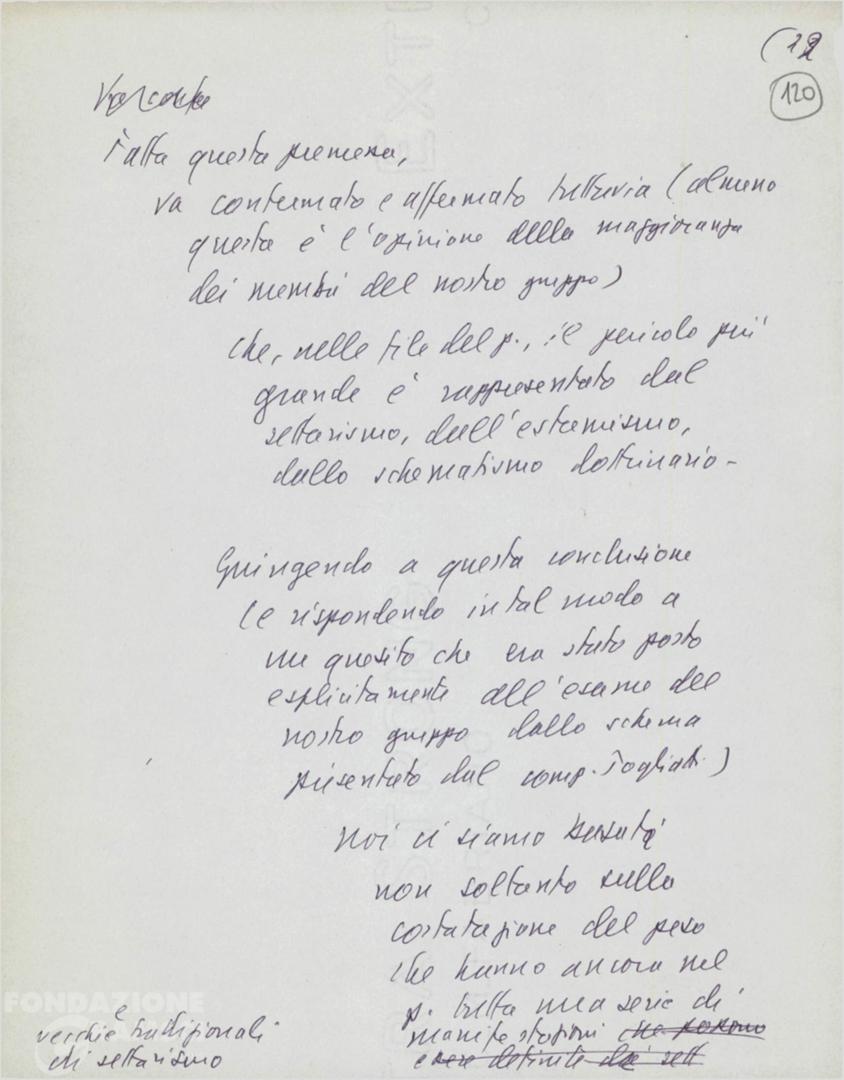 (12
120
Fatta questa premessa,
va confermato e affermato tuttavia (almeno
questa è l'opinione della maggioranza
dei membri del nostro gruppo)
che, nelle file del p., il pericolo più
grande è rappresentato dal
settarismo, dall'estremismo,
dallo schematismo dottrinario -
Giungendo a questa conclusione
(e rispondendo in tal modo a
un quesito che era stato posto
esplicitamente all'esame del
nostro gruppo dallo schema
presentato dal comp. Togliatti)
noi ci siamo basati
non soltanto sulla
costatazione del peso
che hanno ancora nel
p. tutta una serie di
manifestazioni che possono
essere definite di sett
vecchie e tradizionali
di settarismo
FONDAZIONE